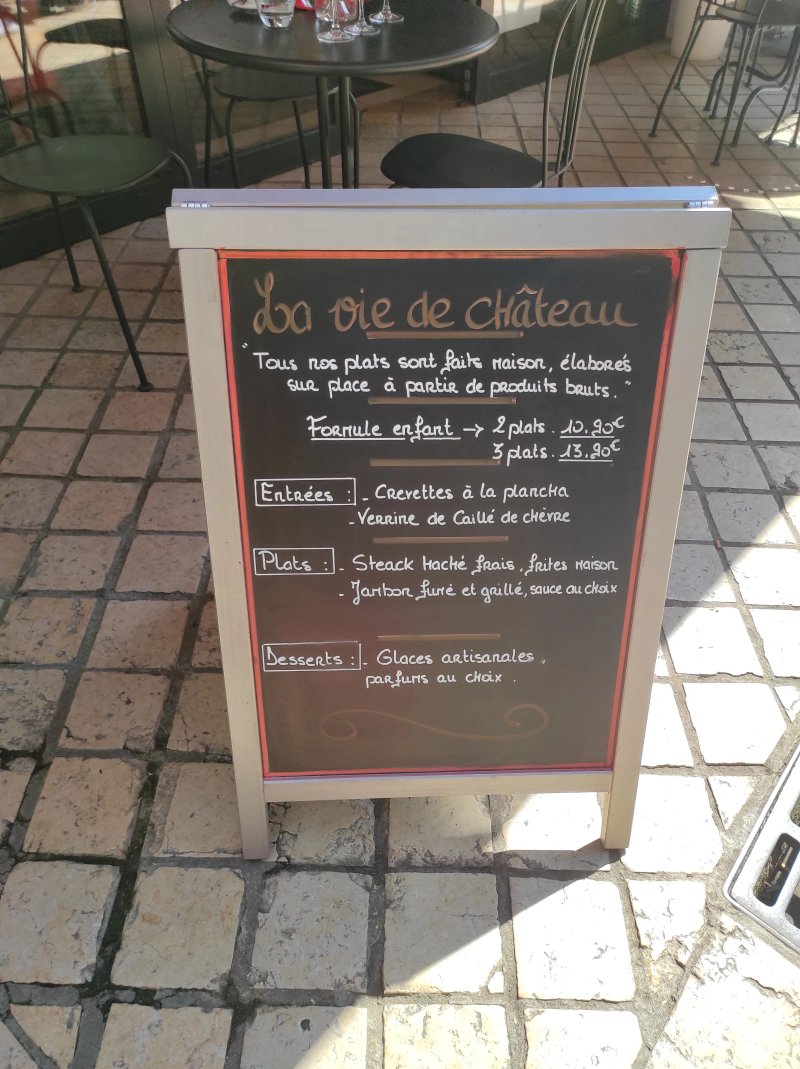 La vie de château
"Tous nos plats sont faits maison, élaborés
sur place à partir de produits bruts."
Formule enfant → 2 plats. 10.90€
3 plats. 13.90€
Entrées : - Crevettes à la plancha
- Verrine de Caillé de chèvre
Plats : - Steack Haché frais, frites maison
- Jambon fumé et grillé, sauce au choix
Desserts : - Glaces artisanales,
parfums au choix.